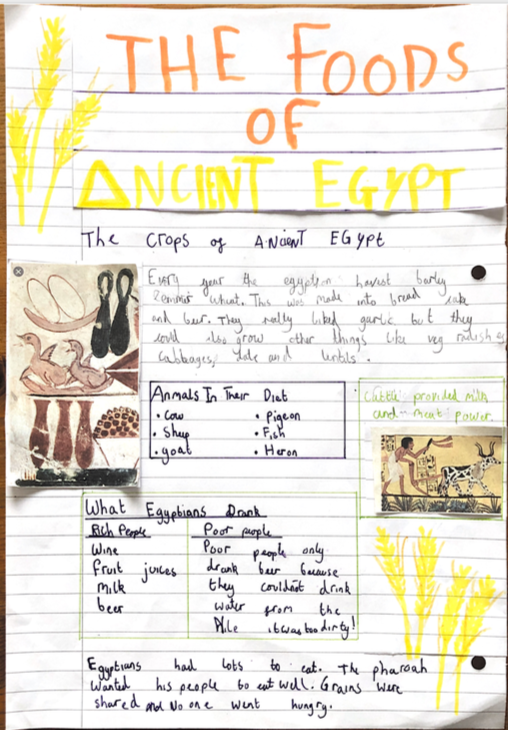 THE FOODS
OF
ANCIENT EGYPT
The Crops of ANCIENT EGYPT
Every year the egyption havest barly
wheat. This was made into bread cake
and beer. They really liked garlic but they
could also grow other things like veg radishes
Cabbages, and lentils.
Anmals In Their Diat
• Cow
• Sheep
• goat
• Pigeon
• Fish
• Heron
Cattle provided milk
and meat power.
What Egyptians Drank
Rich People
Wine
Fruit juices
Milk
beer
Poor people
Poor people only
drank beer because
they couldnt drink
water from the
Nile it was too dirty!
Egyptians had lots to eat. The pharoah
Wanted his people to eat well. Grains were
shared and No one went hungry.